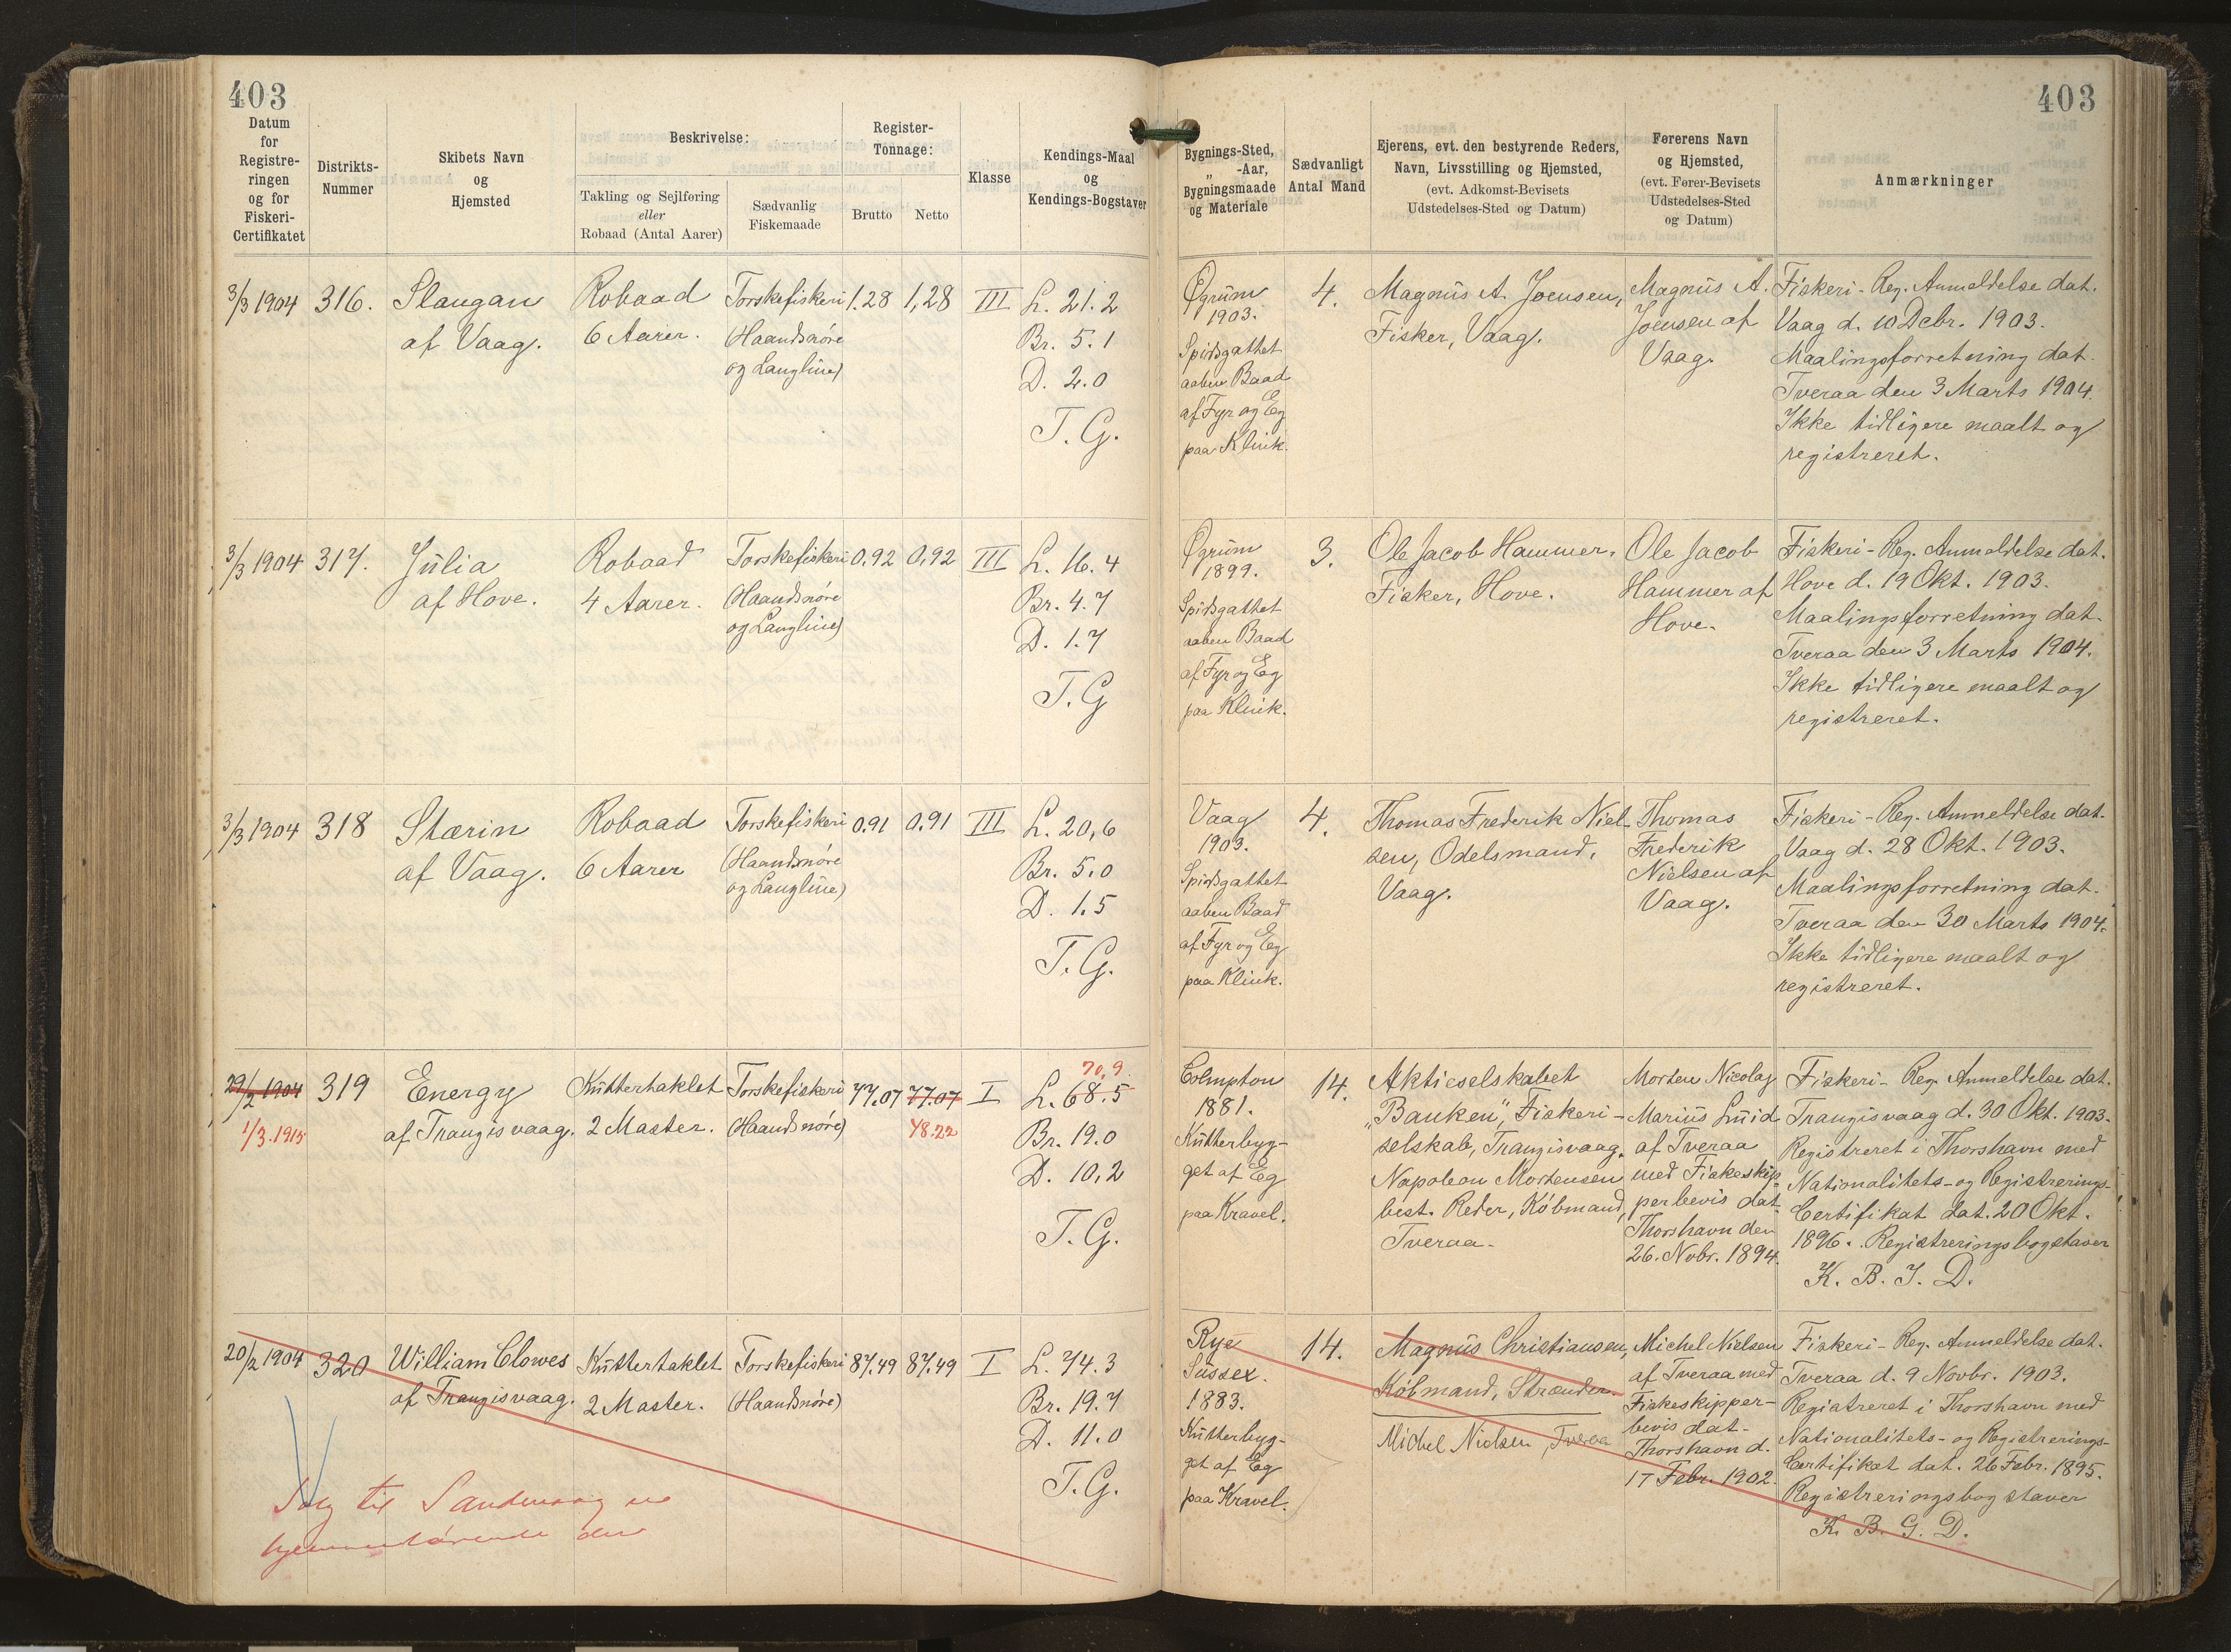 403
403
Datum
for
Registre-
ringen
og for
Fiskeri-
Certifikatet
Distrikts-
Nummer
Skibets Navn
og
Hjemsted
Beskrivelse:
Takling og Sejlføring
eller
Robaad (Antal Aarer)
Sædvanlig
Fiskemaade
Register-
Tonnage:
Brutto
Netto
Klasse
Kendings-Maal
og
Kendings-Bogstaver
Bygnings-Sted,
„ -Aar,
Bygningsmaade
og Materiale
Sædvanligt
Antal Mand
Ejerens, evt. den bestyrende Reders,
Navn, Livsstilling og Hjemsted,
(evt. Adkomst-Bevisets
Udstedelses-Sted og Datum)
Førerens Navn
og Hjemsted,
(evt. Fører-Bevisets
Udstedelses-Sted
og Datum)
Anmærkninger
3/3 1904
316.
Slangan
af Vaag.
Robaad
6 Aarer.
Torskefiskeri
(Haandsnøre
og Langline)
1.28
1,28
III
L. 21.2
Br. 5.1
D. 2.0
T. G.
Øgrum
1903.
Spidsgattet
aaben Baad
af Fyr og Eg
paa Klink.
4.
Magnus A. Joensen,
Fisker, Vaag.
Magnus A.
Joensen af
Vaag.
Fiskeri-Reg. Anmeldelse dat.
Vaag d. 10 Debr. 1903.
Maalingsforretning dat.
Tveraa den 3 Marts 1904.
Ikke tidligere maalt og
registreret.
3/3 1904
317.
Julia
af Hove.
Robaad
4 Aarer.
Torskefiskeri
(Haandsnøre
og Langline)
0.92
0.92
III
L. 16.4
Br. 4.7
D. 1.7
T. G
Øgrum
1899.
Spidsgattet
aaben Baad
af Fyr og Eg
paa Klink.
3.
Ole Jacob Hammer,
Fisker, Hove.
Ole Jacob
Hammer af
Hove.
Fiskeri-Reg. Anmeldelse dat.
Hove d. 19 Okt. 1903.
Maalingsforretning dat.
Tveraa den 3 Marts 1904.
Ikke tidligere maalt og
registreret.
3/3 1904
318
Stærin
af Vaag.
Robaad
6 Aarer
Torskefiskeri
(Haandsnøre
og Langline)
0.91
0.91
III
L. 20,6
Br. 5.0
D. 1.5
T. G.
Vaag
1903.
Spidsgattet
aaben Baad
af Fyr og Eg
paa Klink.
4.
Thomas Frederik Niel-
sen, Odelsmand,
Vaag.
Thomas
Frederik
Nielsen af
Vaag.
Fiskeri-Reg. Anmeldelse dat.
Vaag d. 28 Okt. 1903.
Maalingsforretning dat.
Tveraa den 30 Marts 1904.
Ikke tidligere maalt og
registreret.
29/2 1904
1/3.1915
319
Energy
af Trangisvaag.
Kuttertaklet
2 Master.
Torskefiskeri
(Haandsnøre)
77.07
77.07
48.22
I
70,9
L. 68.5
Br. 19.0
D. 10,2
T. G.
1881.
Kutterbyg-
get af Eg
paa Kravel.
14.
Aktieselskabet
"Banken", Fiskeri-
selskab, Trangisvaag.
Napoleon Mortensen
best. Reder, Købmand,
Tveraa.
Morten Nicolaj
Marius Smid
af Tveraa
med Fiskeskip-
perbevis dat.
Thorshavn den
26. Nobr. 1894.
Fiskeri-Reg. Anmeldelse dat.
Trangisvaag d. 30 Okt. 1903.
Registreret i Thorshavn med
Nationalitets- og Registrerings-
Certifikat dat. 20 Okt.
1896. Registreringsbogstaver
K. B. J. D.
20/2 1904
320
William Clowes
af Trangisvaag.
Kuttertaklet
2 Master.
Torskefiskeri
(Haandsnøre)
87.49
87.49
I
L. 74.3
Br. 19.7
D. 11.0
T. G.
Rye
Sussex.
1883.
Kutterbyg-
get af Eg
paa Kravel.
14.
Magnus Christiansen,
Købmand, Strænder.
Michel Nielsen, Tveraa
Michel Nielsen
af Tveraa med
Fiskeskipper-
bevis dat.
Thorshavn d.
17 Febr. 1902.
Fiskeri-Reg. Anmeldelse dat.
Tveraa d. 9 Novbr. 1903.
Registreret i Thorshavn med
Nationalitets- og Registrerings-
Certifikat dat. 26 Febr. 1895.
Registreringsbogstaver
K. B. G. D.
Solg til Sandevaag
hjemmehørende der